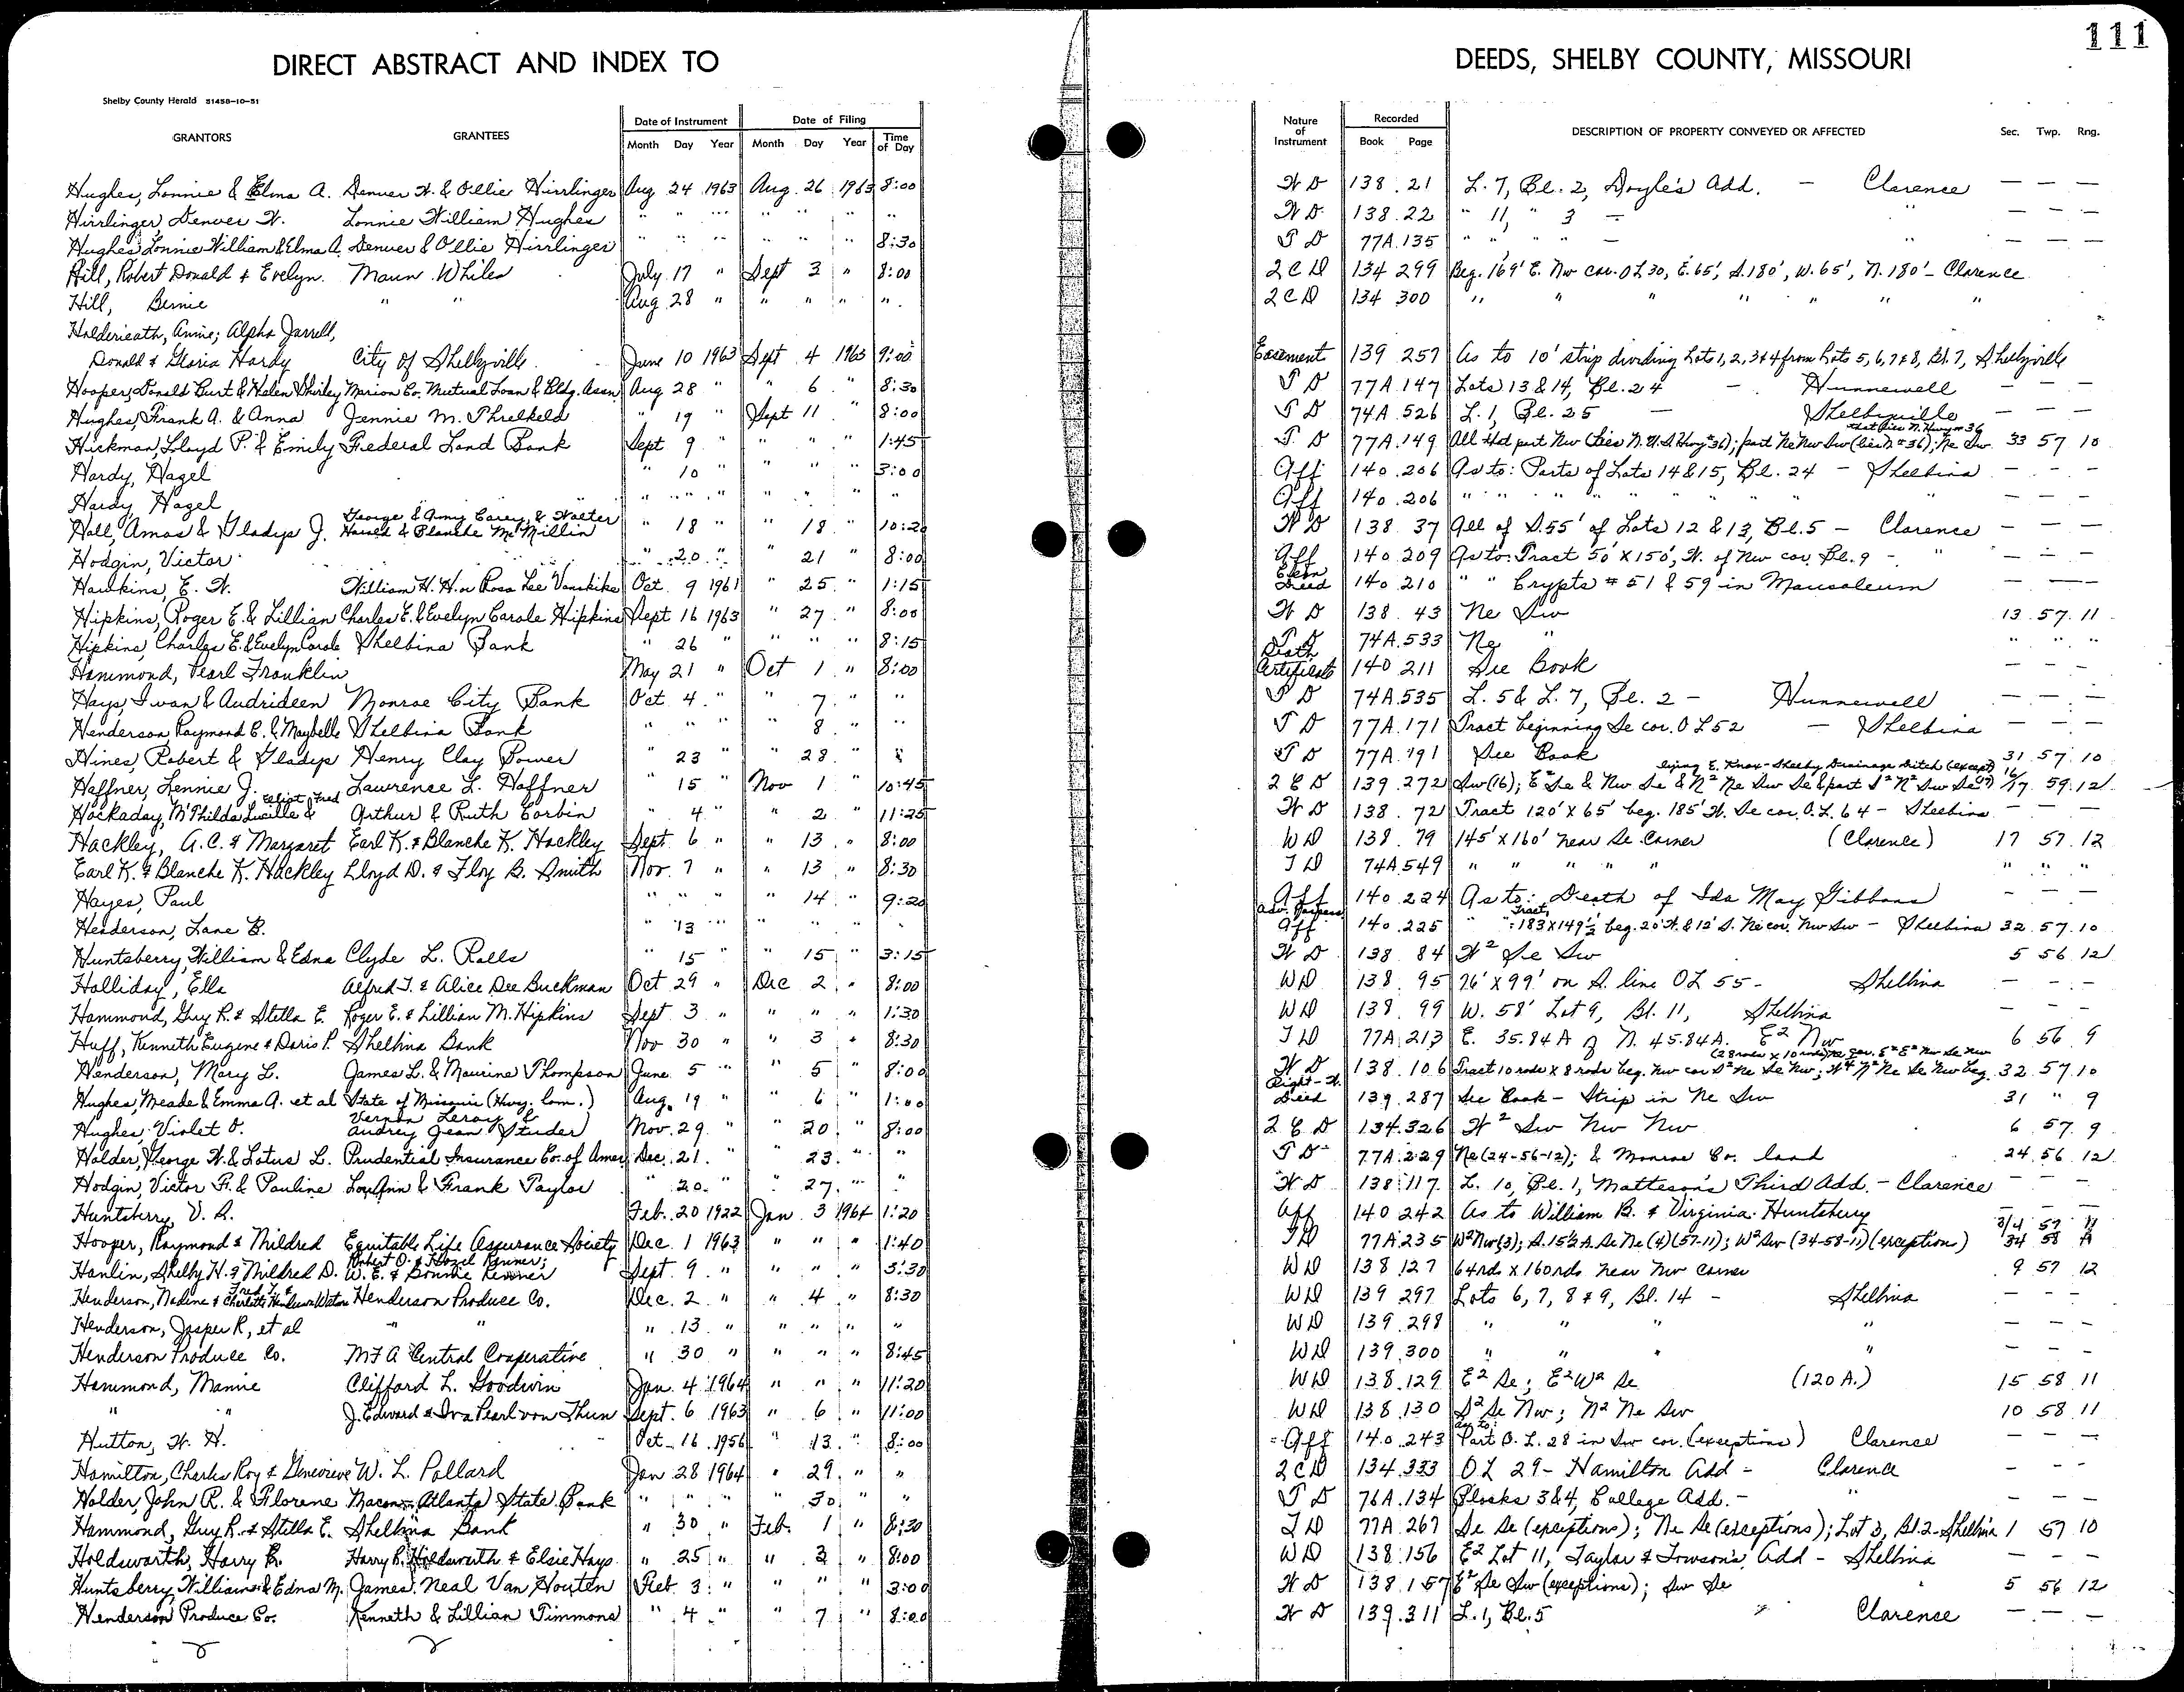 111
DIRECT ABSTRACT AND INDEX TO DEEDS, SHELBY COUNTY, MISSOURI
Shelby County Herald 51458-10-51
GRANTORS GRANTEES Date of Instrument Date of Filing Nature of Instrument Recorded DESCRIPTION OF PROPERTY CONVEYED OR AFFECTED Sec. Twp. Rng.
Month Day Year Month Day Year Time of Day Book Page
Hughes, Lonnie & Elma A. Denver W. & Ollie Hirrlinger Aug 24 1963 Aug. 26 1963 8:00 W D 138 21 L. 7, Bl. 2, Doyle's Add. - Clarence — — —
Hirrlinger, Denver W. Lonnie William Hughes " " " " " " " W D 138 22 " 11, " 3 — " — — —
Hughes, Lonnie William & Elma A. Denver & Ollie Hirrlinger " " " " " " 8:30 T D 77A 135 " " " " — " — — —
Hill, Robert Donald & Evelyn. Maun Whiles July 17 " Sept 3 " 8:00 2 C D 134 299 Beg. 169' E. Nw cor. OL 30, E. 65', S. 180', W. 65', N. 180' - Clarence
Hill, Bernie " " Aug 28 " " " " " 2 C D 134 300 " " " " " " "
Holderieath, Annie; Alpha Jarrell,
Donald & Gloria Hardy City of Shelbyville June 10 1963 Sept 4 1963 9:00 Easement 139 257 As to 10' strip dividing Lots 1, 2, 3 & 4 from Lots 5, 6, 7 & 8, Bl. 7, Shelbyville
Hooper, Donald Burt & Helen Shirley Marion Co. Mutual Loan & Bldg. Assn. Aug 28 " " 6 " 8:30 T D 77A 147 Lots 13 & 14, Bl. 24 - Hunnewell — — —
Hughes, Frank A. & Anna Jennie M. Threlkeld " 19 " Sept 11 " 8:00 T D 74A 526 L. 1, Bl. 25 — Shelbyville — — —
that lies N. Hwy # 36
Hickman, Lloyd P. & Emily Federal Land Bank Sept 9 " " " " 1:45 T D 77A 149 All that part Nw (lies N. U.S. Hwy # 36); part Ne Nw Sw (lies N # 36); Ne Sw 33 57 10
Hardy, Hazel " 10 " " " " 3:00 Aff 140 206 As to: Parts of Lots 14 & 15, Bl. 24 - Shelbina — — —
Hardy, Hazel " " " " " " " Aff 140 206 " " " " " " " " — — —
George & Amy Carey, & Walter
Hall, Amos & Gladys J. Harold & Blanche McMillin " 18 " " 18 " 10:20 W D 138 37 All of S. 55' of Lots 12 & 13, Bl. 5 - Clarence — — —
Hodgin, Victor " 20 " " 21 " 8:00 Aff 140 209 As to: Tract 50' x 150', W. of Nw cor. Bl. 9 - " — — —
Hawkins, E. W. William H. H. or Rosa Lee Vanskike Oct. 9 1961 " 25 " 1:15 Deed 140 210 " " Crypts # 51 & 59 in Mausoleum — — —
Hipkins, Roger E. & Lillian Charles E. & Evelyn Carole Hipkins Sept 16 1963 " 27 " 8:00 W D 138 43 Ne Sw 13 57 11
Hipkins, Charles E. & Evelyn Carole Shelbina Bank " 26 " " " " 8:15 T D 74A 533 Ne " " " "
Hammond, Pearl Franklin May 21 " Oct 1 " 8:00 Death Certificate 140 211 See Book — — —
Hays, Ivan & Audrideen Monroe City Bank Oct. 4 " " 7 " " T D 74A 535 L. 5 & L. 7, Bl. 2 - Hunnewell — — —
Henderson Raymond E. & Maybelle Shelbina Bank " " " " 8 " " T D 77A 171 Tract beginning Se cor. OL 52 — Shelbina — — —
Hines, Robert & Gladys Henry Clay Power " 23 " " 28 " " T D 77A 191 See Book 31 57 10
lying E. Knox-Shelby Drainage Ditch (except)
Haffner, Lennie J. Lawrence L. Haffner " 15 " Nov 1 " 10:45 2 C D 139 272 Sw (16); E² Se & Nw Se & N² Ne Sw Se & part S² N² Sw Se (17) 16/17 59 12
Hockaday, M'Thilda Lucille & Elliot Fred Arthur & Ruth Corbin " 4 " " 2 " 11:25 W D 138 72 Tract 120' x 65' beg. 185' W. Se cor. O.L. 64 - Shelbina — — —
Hackley, A.C. & Margaret Earl K. & Blanche K. Hackley Sept. 6 " " 13 " 8:00 W D 138 79 145' x 160' near Se Corner (Clarence) 17 57 12
Earl K. & Blanche K. Hackley Lloyd D. & Floy B. Smith Nov. 7 " " 13 " 8:30 T D 74A 549 " " " " " " " "
Hayes, Paul " " " " 14 " 9:20 Aff 140 224 As to: Death of Ida May Gibbons — — —
Henderson, Lane B. " 13 " " " " " Adv. Possess Aff 140 225 " Tract, 183 x 149½ beg. 20' W. & 12' S. Ne cor. Nw Sw - Shelbina 32 57 10
Huntsberry, William & Edna Clyde L. Ralls " 15 " " 15 " 3:15 W D 138 84 W² Se Sw 5 56 12
Holliday, Ella Alfred T. & Alice Dee Buckman Oct 29 " Dec 2 " 8:00 W D 138 95 76' x 99' on S. line OL 55 - Shelbina — — —
Hammond, Guy R. & Stella E. Roger E. & Lillian M. Hipkins Sept 3 " " " " 1:30 W D 138 99 W. 58' Lot 9, Bl. 11, Shelbina — — —
Huff, Kenneth Eugene & Doris P. Shelbina Bank Nov 30 " " 3 " 8:30 T D 77A 213 E. 35.84 A of N. 45.84 A. E² Nw 6 56 9
Henderson, Mary L. James L. & Maurine Thompson June 5 " " 5 " 8:00 W D 138 106 Tract 10 rods x 8 rods beg. Nw cor S² Ne Se Nw; 32 57 10
Hughes, Meade & Emma A. et al State of Missouri (Hwy. Com.) Aug. 19 " " 6 " 1:00 Right-W. Deed 139 287 See Book - Strip in Ne Sw 31 " 9
Hughes, Violet O. Vernon Leroy & Audrey Jean Studer Nov. 29 " " 20 " 8:00 2 C D 134 326 W² Sw Nw Nw 6 57 9
Holder, George W. & Lotus L. Prudential Insurance Co. of Amer Dec. 21 " " 23 " " T D 77A 229 Ne (24-56-12); & Monroe Co. land 24 56 12
Hodgin, Victor F. & Pauline Lou Ann & Frank Taylor " 20 " " 27 " " W D 138 117 L. 10, Bl. 1, Matteson's Third Add. - Clarence — — —
Huntsberry, V. R. Feb. 20 1922 Jan 3 1964 1:20 Aff 140 242 As to William B. & Virginia Huntsberry — — —
Hooper, Raymond & Mildred Equitable Life Assurance Society Dec. 1 1963 " " " 1:40 T D 77A 235 W² Nw (3); S. 15½ A. Se Ne (4) (57-11); W² Sw (34-58-11) (exception) 3/4 57 11 34 58 11
Hanlin, Shelby H. & Mildred D. Robert O. & Hazel Renner; W. E. & Bonnie Renner Sept. 9 " " " " 3:30 W D 138 127 64 rds x 160 rds near Nw Corner 9 57 12
Henderson, Nadine & Henderson Produce Co. Dec. 2 " " 4 " 8:30 W D 139 297 Lots 6, 7, 8 & 9, Bl. 14 - Shelbina — — —
Henderson, Jasper R, et al " " " 13 " " " " " W D 139 298 " " " " — — —
Henderson Produce Co. MFA Central Cooperative " 30 " " " " 8:45 W D 139 300 " " " " — — —
Hammond, Mannie Clifford L. Goodwin Jan. 4 1964 " " " 11:20 W D 138 129 E² Se; E² W² Se (120 A.) 15 58 11
" " J. Edward & Iva Pearl von Thun Sept. 6 1963 " 6 " 11:00 W D 138 130 S² Se Nw; N² Ne Sw 10 58 11
Hutton, W. H. Oct-16 1956 " 13 " 8:00 Aff 140 243 As to: Part O. L. 28 in Sw cor. (exceptions) Clarence — — —
Hamilton, Charles Roy & Genevieve W. L. Pollard Jan 28 1964 " 29 " " 2 C D 134 333 OL 29 - Hamilton Add - Clarence — — —
Holder, John R. & Florene Macon-Atlanta State Bank " " " " 30 " " T D 76A 134 Blocks 3 & 4, College Add. - " — — —
Hammond, Guy R. & Stella E. Shelbina Bank " 30 " Feb. 1 " 8:30 T D 77A 267 Se Se (exceptions); Ne Se (exceptions); Lot 3, Bl. 2 - Shelbina 1 57 10
Holdsworth, Harry R. Harry R. Holdsworth & Elsie Hays " 25 " " 3 " 8:00 W D 138 156 E² Lot 11, Taylor & Towson's Add - Shelbina — — —
Huntsberry, William & Edna M. James Neal Van Houten Feb. 3 " " " " 3:00 W D 138 157 E² Se Sw (exceptions); Sw Se 5 56 12
Henderson Produce Co. Kenneth & Lillian Timmons " 4 " " 7 " 8:00 W D 139 311 L. 1, Bl. 5 Clarence — — —